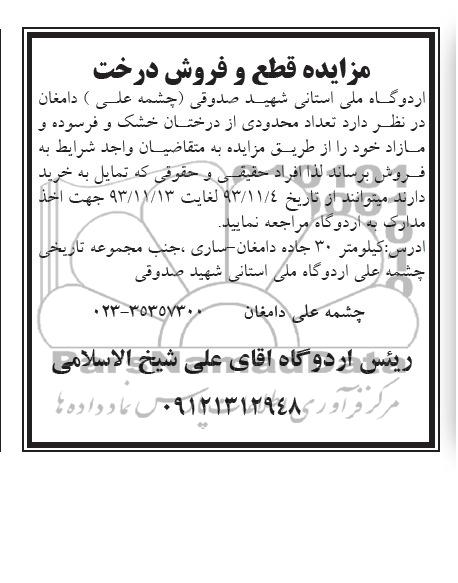 مزایده قطع و فروش درخت
اردوگاه ملی استانی شهید صدوقی (چشمه علی ) دامغان
در نظر دارد تعداد محدودی از درختان خشک و فرسوده و
مازاد خود را از طریق مزایده به متقاضیان واجد شرایط به
فروش برساند لذا افراد حقیقی و حقوقی که تمایل به خرید
دارند میتوانند از تاریخ ۹۳/۱۱/٤ لغایت ۹۳/۱۱/۱۳ جهت اخذ
مدارک به اردوگاه مراجعه نمایید.
ادرس:کیلومتر ۳۰ جاده دامغان-ساری ،جنب مجموعه تاریخی
چشمه علی اردوگاه ملی استانی شهید صدوقی
چشمه علی دامغان ۰۲۳-۳۵۳۵۷۳۰۰
ریئس اردوگاه اقای علی شیخ الاسلامی
۰۹۱۲۱۳۱۲۹٤۸
مرکز فرآوری اطلاعات پارس نماد داده ها